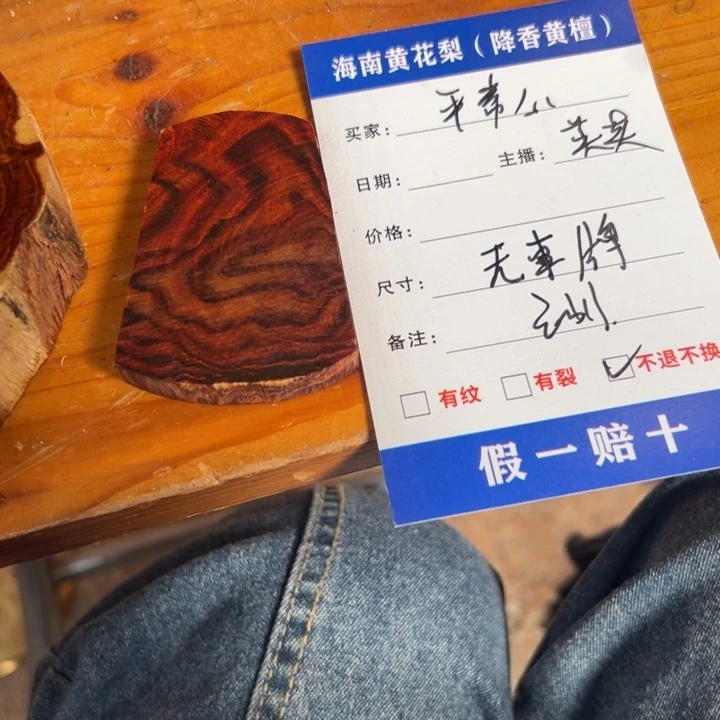 海南黄花梨（降香黄檀）
买家：平常心
日期：
主播：英英
价格：
尺寸：无事牌
备注：
有纹
有裂
不退不换
假一赔十